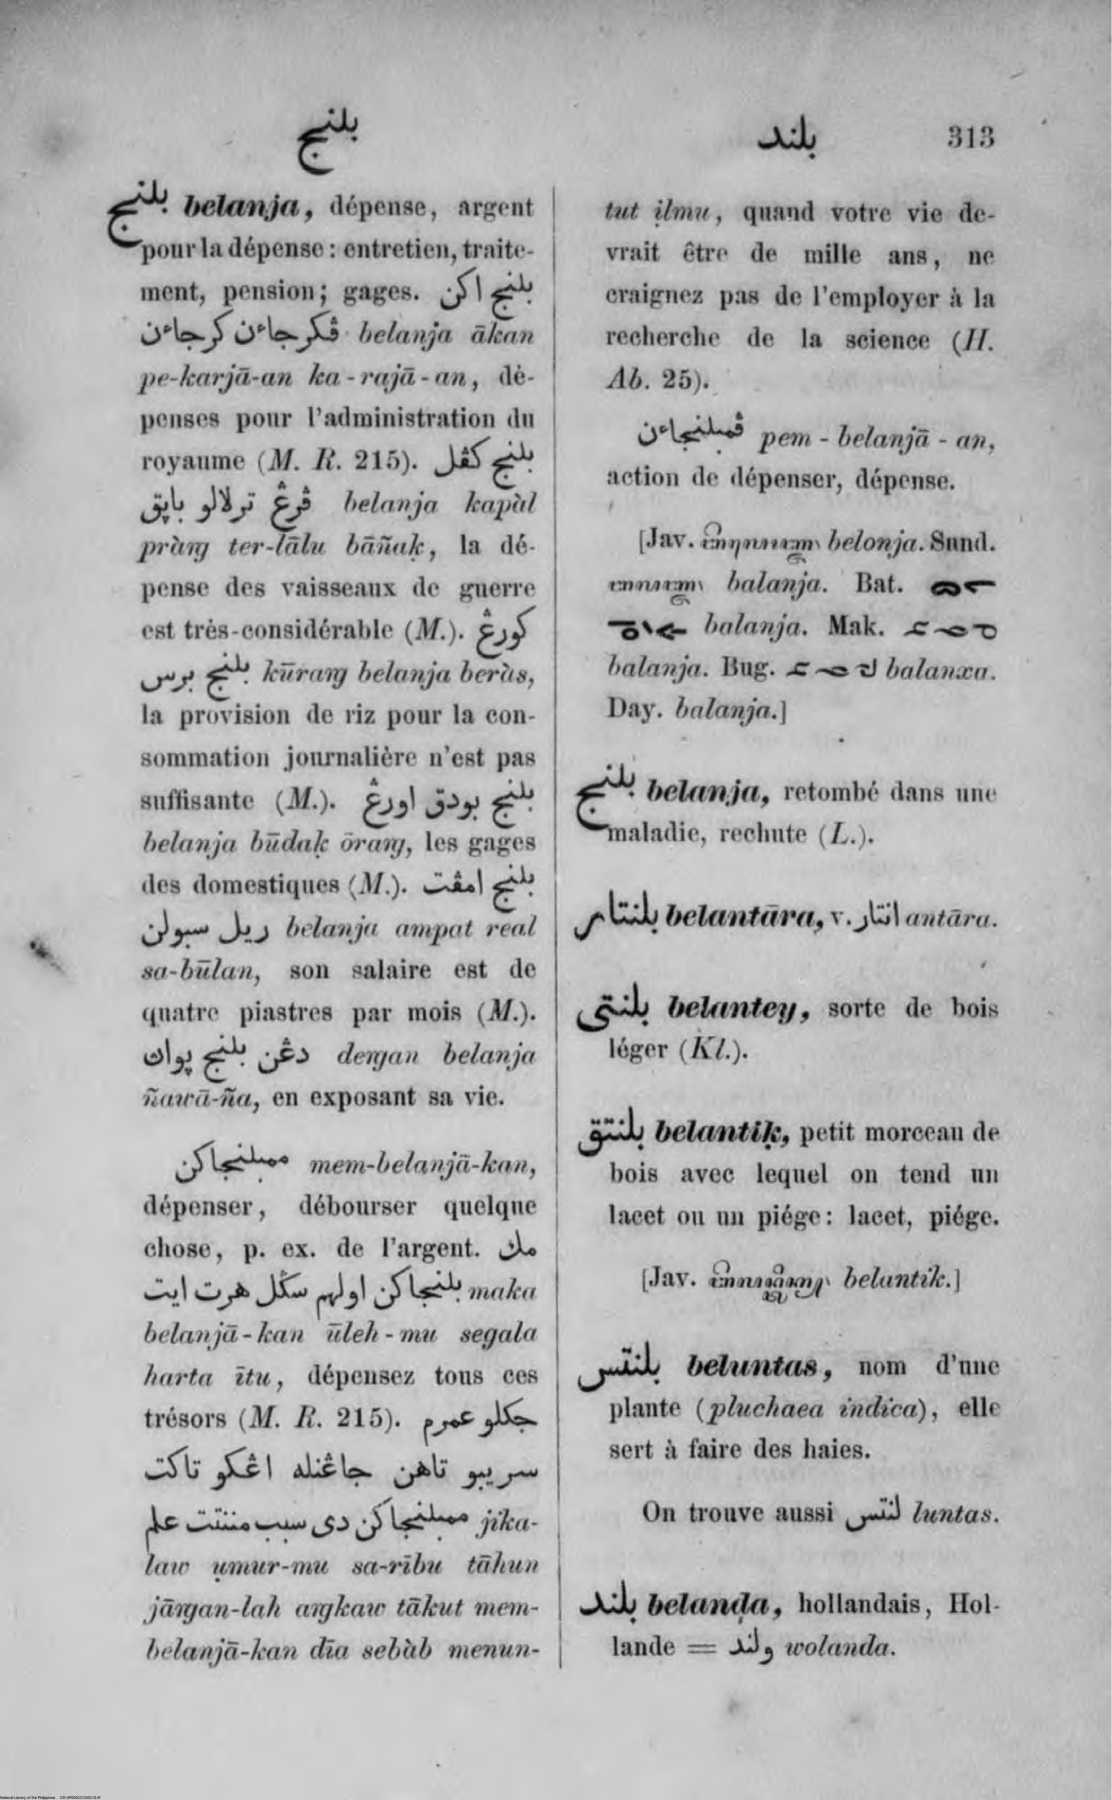 بلنج
بلند 313
بلنج belanja, dépense, argent
pour la dépense: entretien, traite-
ment, pension; gages. بلنج اکن
ڤکرجاءن کرجاءن belanja ākan
pe-karjā-an ka-rajā-an, dé-
penses pour l'administration du
royaume (M. R. 215). بلنج کڤل
ڤرڠ ترلالو باپق belanja kapàl
pràng ter-lālu bāñaḳ, la dé-
pense des vaisseaux de guerre
est très-considérable (M.). کورڠ
بلنج برس kūrang belanja beràs,
la provision de riz pour la con-
sommation journalière n'est pas
suffisante (M.). بلنج بودق اورڠ
belanja būdaḳ ōrang, les gages
des domestiques (M.). بلنج امڤت
ريل سبولن belanja ampat real
sa-būlan, son salaire est de
quatre piastres par mois (M.).
دڠن بلنج پوان dengan belanja
ñawā-ña, en exposant sa vie.
ممبلنجاکن mem-belanjā-kan,
dépenser, débourser quelque
chose, p. ex. de l'argent. مك
بلنجاکن اولهم سڬل هرت ايت maka
belanjā-kan ūleh-mu segala
harta ītu, dépensez tous ces
trésors (M. R. 215). جکلو عمرم
سريبو تاهن جاڠنله اڠکو تاکت
ممبلنجاکن دى سبب مننتت علم jika-
law ụmur-mu sa-rību tāhun
jāngan-lah angkaw tākut mem-
belanjā-kan dīa sebàb menun-
tut ịlmu, quand votre vie de-
vrait être de mille ans, ne
craignez pas de l'employer à la
recherche de la science (H.
Ab. 25).
ڤمبلنجاءن pem-belanjā-an,
action de dépenser, dépense.
[Jav. belonja. Sund.
balanja. Bat.
balanja. Mak.
balanja. Bug. balanxa.
Day. balanja.]
بلنج belanja, retombé dans une
maladie, rechute (L.).
بلنتار belantāra, v. انتار antāra.
بلنتى belantey, sorte de bois
léger (Kl.).
بلنتق belantiḳ, petit morceau de
bois avec lequel on tend un
lacet ou un piége: lacet, piége.
[Jav. belantik.]
بلنتس beluntas, nom d'une
plante (pluchaea indica), elle
sert à faire des haies.
On trouve aussi لنتس luntas.
بلند belanḍa, hollandais, Hol-
lande = ولند wolanda.